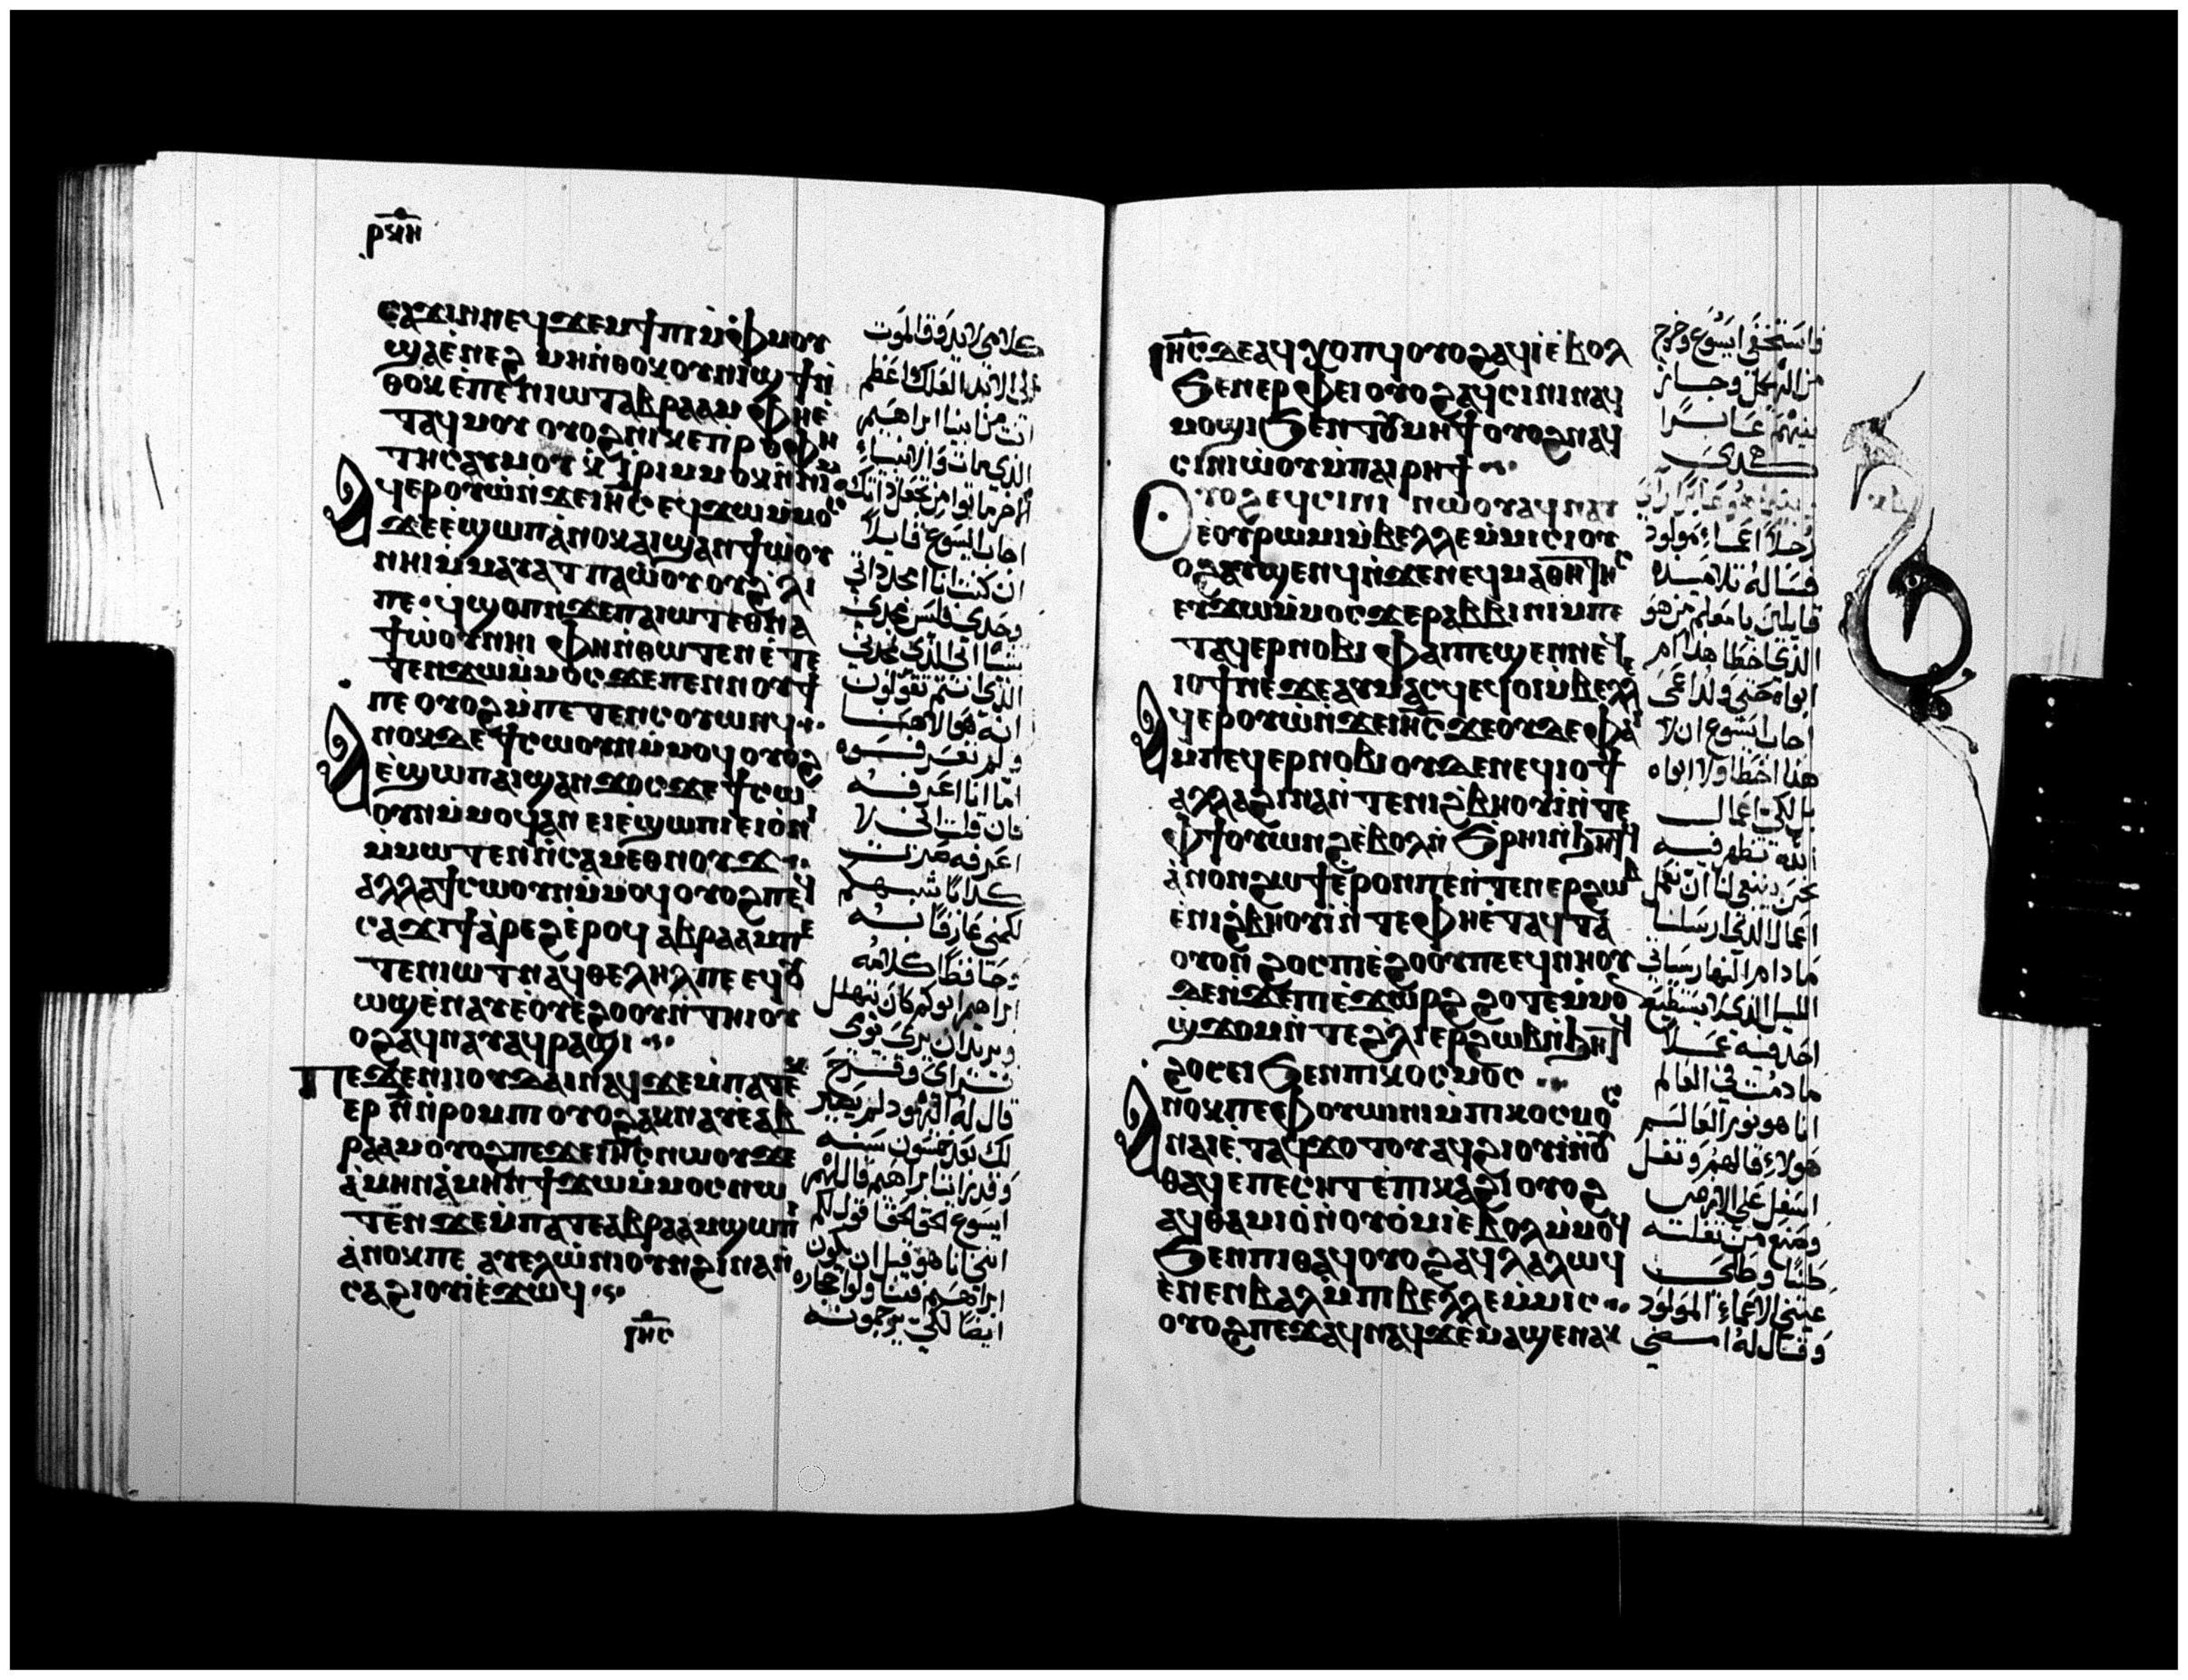 ⲣⲝⲏ
ⲥⲁϫⲓ ⲛⲛⲉϥϫⲉⲙϯⲡⲓ ⲙ̀ⲫⲙⲟⲩ
ϣⲁⲉ̀ⲛⲉϩ ⲙⲏ ⲛ̀ⲑⲟⲕ ⲟⲩⲛⲓϣϯ ⲛ̀
ⲑⲟⲕ ⲉ̀ⲡⲉⲛⲓⲱⲧ ⲁⲃⲣⲁⲁⲙ ⲫⲏⲉ̀
ⲧⲁϥⲙⲟⲩ ⲟⲩⲟϩ ⲛⲓⲕⲉⲡⲣⲟⲫⲏ
ⲧⲏⲥ ⲁⲩⲙⲟⲩ ⲁⲕⲓⲣⲓ ⲙ̀ⲙⲟⲕ ⲛ̀ⲛⲓⲙ
ⲁϥⲉⲣⲟⲩⲱ̀ ⲛ̀ϫⲉ ⲓⲏⲥ ⲉϥϫⲱ ⲙ̀ⲙⲟⲥ
ϫⲉ ⲉ̀ϣⲱⲡ ⲁ̀ⲛⲟⲕ ⲁⲓϣⲁⲛϯⲱ̀ⲟⲩ
ⲛⲏⲓ ⲙ̀ⲙⲁⲩⲁⲧ ⲡⲁⲱ̀ⲟⲩ ⲟⲩϩⲗⲓ
ⲡⲉ ϥϣⲟⲡ ⲛ̀ϫⲉ ⲡⲁⲓⲱⲧ ⲉⲑⲛⲁ
ϯⲱ̀ⲟⲩ ⲛⲏⲓ ⲫⲏ ⲛ̀ⲑⲱⲧⲉⲛ ⲉ̀ⲧⲉ
ⲧⲉⲛϫⲱ ⲙ̀ⲙⲟⲥ ϫⲉ ⲡⲉⲛⲛⲟⲩϯ
ⲡⲉ ⲟⲩⲟϩ ⲙ̀ⲡⲉⲧⲉⲛⲥⲟⲩⲱⲛϥ
ⲁⲛⲟⲕ ⲇⲉ ϯⲥⲱⲟⲩⲛ ⲙ̀ⲙⲟϥ ⲟⲩⲟϩ
ⲉ̀ϣⲱⲡ ⲁⲓϣⲁⲛϫⲟⲥ ϫⲉ ϯⲥⲱ
ⲟⲩⲛ ⲙ̀ⲙⲟϥ ⲁⲛ ⲉⲓⲉ̀ϣⲱⲡⲓ ⲉⲓⲟ̀ⲛⲓ
ⲙ̀ⲙⲱⲧⲉⲛ ⲛ̀ⲥⲁⲙⲉⲑⲛⲟⲩϫ
ⲁⲗⲗⲁ ϯⲥⲱⲟⲩⲛ ⲙ̀ⲙⲟϥ ⲟⲩⲟϩ ⲡⲉϥ
ⲥⲁϫⲓ ϯⲁ̀ⲣⲉϩ ⲉ̀ⲣⲟϥ ⲁⲃⲣⲁⲁⲙ ⲡⲉ
ⲧⲉⲛⲓⲱⲧ ⲛⲁϥⲑⲉⲗⲏⲗ ⲡⲉ ⲉϥⲟⲩ
ⲱϣ ⲉ̀ⲛⲁⲩ ⲉ̀ⲟⲩⲉ̀ϩⲟⲟⲩ ⲛ̀ⲧⲏⲓ ⲟⲩ
ⲟϩ ⲁϥⲛⲁⲩ ⲁϥⲣⲁϣⲓ
ⲡⲉϫⲉ ⲛⲓⲓⲟⲩⲇⲁⲓ ⲛⲁϥ ϫⲉ ⲙ̀ⲡⲁⲧⲉⲕ
ⲉⲣ ⲛ̅ ⲛ̀ⲣⲟⲙⲡⲓ ⲟⲩⲟϩ ⲁⲕⲛⲁⲩ ⲉ̀ⲁⲃ
ⲣⲁⲁⲙ ⲟⲩⲟϩ ⲡⲉϫⲉ ⲓⲏⲥ ⲛⲱⲟⲩ ϫⲉ
ⲁ̀ⲙⲏⲛ ⲁ̀ⲙⲏⲛ ϯϫⲱ ⲙ̀ⲙⲟⲥ ⲛⲱ
ⲧⲉⲛ ϫⲉ ⲙ̀ⲡⲁⲧⲉ ⲁⲃⲣⲁⲁⲙ ϣⲱⲡⲓ
ⲁ̀ⲛⲟⲕ ⲡⲉ ⲁⲩⲉⲗⲱ̀ⲛⲓ ⲟⲩⲛ ϩⲓⲛⲁ ⲛ̀
ⲥⲁϩⲓⲟⲩⲓ ⲉ̀ϫⲱϥ
ⲓⲏⲥ
كلامى لا يذوق الموت
الى الابد العلك اعظم
انت من ابينا ابراهيم
الذي مات والانبياء
اجاب ايسوع قايلاً
ان كنت انا امجد ذاتي
وحدى فليس مجدي
الذي انتم تقولون
انه هو الاهنا
ولم تعرفوه
اما انا اعرفه
فان قلت اني لا
اعرفه صرت
كذابًا شبهكم
لكنني عارفًا به
وحافظًا كلامه
ابراهيم ابوكم كان يتهلل
ويريد ان يرى يومى
فراى وفرح
قال له اليهود لم يصر
لك بعد خمسون سنه
وقد رايت ابراهيم قال لهم
ايسوع الحق الحق اقول لكم
انني انا هو قبل ان يكون
ابراهيم فتناولوا حجاره
ايضًا لكي يرجموه
ⲓⲏⲥ ⲇⲉ ⲁϥⲭⲟⲡϥ ⲟⲩⲟϩ ⲁϥⲓ̀ ⲉ̀ⲃⲟⲗ
ϧⲉⲛ ⲉⲣⲫⲉⲓ ⲟⲩⲟϩ ⲁϥⲥⲓⲛⲓ ⲛⲁϥ
ⲙⲟϣⲓ ϧⲉⲛ ⲧⲟⲩⲙⲏϯ ⲟⲩⲟϩ ⲛⲁϥ
ⲥⲓⲛⲓⲱ̀ⲟⲩ ⲙ̀ⲡⲁⲓⲣⲏϯ
ⲟⲩⲟϩ ⲉϥⲥⲓⲛⲓ ⲛⲱⲟⲩ ⲁϥⲛⲁⲩ
ⲉ̀ⲟⲩⲣⲱⲙⲓ ⲙ̀ⲃⲉⲗⲗⲉ ⲙ̀ⲙⲓⲥⲓ ⲟⲩ
ⲟϩ ⲁⲩϣⲉⲛϥ ⲛ̀ϫⲉ ⲛⲉϥⲙⲁⲑⲏⲧⲏⲥ
ⲉⲩϫⲱ ⲙ̀ⲙⲟⲥ ϫⲉ ⲣⲁⲃⲃⲓ ⲛⲓⲙ ⲡⲉ
ⲧⲁϥⲉⲣⲛⲟⲃⲓ ⲫⲁⲓ ⲡⲉ ϣⲉⲛ ⲛⲉϥ
ⲓⲟϯ ⲛⲉ ϫⲉ ⲁⲩⲙⲁⲥϥ ⲉϥⲟⲓ ⲙ̀ⲃⲉⲗⲗⲉ
ⲁϥⲉⲣⲟⲩⲱ̀ ⲛ̀ϫⲉ ⲓⲏⲥ ϫⲉ ⲟⲩⲇⲉ ⲫⲁⲓ
ⲙⲡⲉϥⲉⲣⲛⲟⲃⲓ ⲟⲩⲇⲉ ⲛⲉϥⲓⲟϯ
ⲁⲗⲗⲁ ϩⲓⲛⲁ ⲛ̀ⲧⲉ ⲛⲓϩ̀ⲃⲏⲟⲩⲓ̀ ⲛ̀ⲧⲉ
ⲫϯ ⲟⲩⲱⲛϩ ⲉ̀ⲃⲟⲗ ⲛ̀ϧⲣⲏⲓ ⲛ̀ϧⲏⲧϥ
ⲁ̀ⲛⲟⲛ ϩⲱϯ ⲉ̀ⲣⲟⲛ ⲡⲉ ⲛ̀ⲧⲉⲛⲉⲣϩⲱⲃ
ⲉ̀ⲛⲓϩ̀ⲃⲏⲟⲩⲓ̀ ⲛ̀ⲧⲉ ⲫⲏⲉ̀ⲧⲁϥⲧⲁ
ⲟⲩⲟⲛ ϩⲟⲥ ⲡⲓⲉ̀ϩⲟⲟⲩ ⲡⲉ ϥⲛⲏⲟⲩ
ϫⲉ ⲛ̀ϫⲉ ⲡⲓⲉ̀ϫⲱⲣϩ ϩⲟⲧⲉ ⲙ̀ⲙⲟⲛ
ϣ̀ϫⲟⲙ ⲛ̀ⲧⲉ ϩⲗⲓ ⲉⲣϩⲱⲃ ⲛ̀ϧⲏⲧϥ
ϩⲟⲥ ⲉⲓ ϧⲉⲛ ⲡⲓⲕⲟⲥⲙⲟⲥ
ⲁⲛⲟⲕ ⲡⲉ ⲫⲟⲩⲱⲓⲛⲓ ⲙ̀ⲡⲓⲕⲟⲥⲙⲟⲥ
ⲛⲁⲓ ⲉ̀ⲧⲁϥϫⲟⲧⲟⲩ ⲁϥϩⲓⲟⲩⲓ̀ ⲛ̀ⲟⲩ
ⲑⲁϥ ⲉ̀ⲡⲉⲥⲏⲧ ⲉ̀ⲡⲓⲕⲁϩⲓ ⲟⲩⲟϩ
ⲁϥⲑⲁⲙⲓⲟ̀ ⲛ̀ⲟⲩⲟ̀ⲙⲓ ⲉ̀ⲃⲟⲗ ⲙ̀ⲙⲟϥ
ϧⲉⲛ ⲡⲓⲑⲁϥ ⲟⲩⲟϩ ⲁϥⲗⲁⲗⲱϥ
ⲉ̀ⲛⲉⲛⲃⲁⲗ ⲙ̀ⲡⲓⲃⲉⲗⲗⲉ ⲙ̀ⲙⲓⲥⲓ
ⲟⲩⲟϩ ⲡⲉϫⲁϥ ⲛⲁϥ ϫⲉ ⲙ̀ⲁϣⲉⲛⲁⲕ
فاستخفى ايسوع وخرج
من الهيكل وجاز
بينهم عابرًا
هكذى
رجلاً اعماء مولود
فساله تلاميذه
قايلين يا معلم من هو
الذي اخطا هذا ام
ابواه حتى ولد اعمى
اجاب ايسوع ان لا
هذا اخطا ولا ابواه
بل لكي اعمال
الله تظهر فيه
نحن ينبغي لنا ان نعمل
اعمال الذي ارسلنا
ما دام النهار سياتي
الليل الذي لا يستطيع
احد فيه عملاً
ما دمت في العالم
انا هو نور العالم
هولاء قالهم وتفل
اسفل على الارض
وصنع من تفلته
طينًا وطلى
عيني الاعماء المولود
وقال له امضي